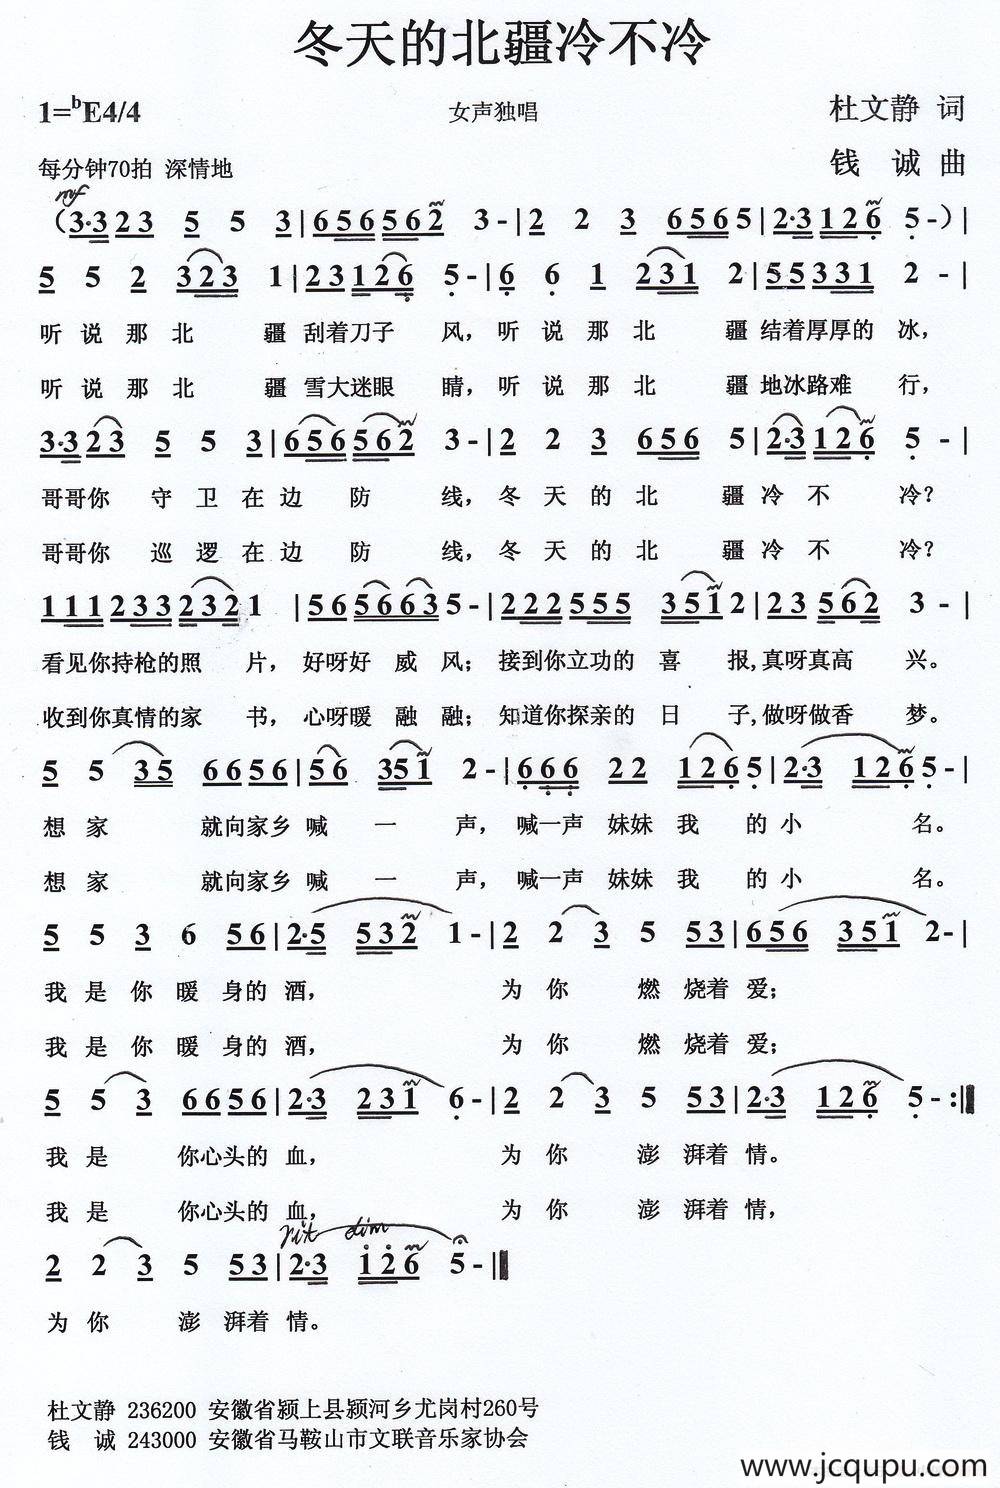 冬天的北疆冷不冷
1=bE4/4 女声独唱 杜文静 词
每分钟70拍 深情地 钱 诚 曲
mf
(3·3 2 3 5 5 3 | 6 5 6 5 6 2 3 - | 2 2 3 6 5 6 5 | 2·3 1 2 6 5 - ) |
5 5 2 3 2 3 1 | 2 3 1 2 6 5 - | 6 6 1 2 3 1 2 | 5 5 3 3 1 2 - |
听 说 那 北 疆 刮着刀子 风, 听 说 那 北 疆 结着厚厚的 冰,
听 说 那 北 疆 雪大迷眼 睛, 听 说 那 北 疆 地冰路难 行,
3·3 2 3 5 5 3 | 6 5 6 5 6 2 3 - | 2 2 3 6 5 6 5 | 2·3 1 2 6 5 - |
哥哥你 守 卫 在 边 防 线, 冬 天 的 北 疆 冷 不 冷?
哥哥你 巡 逻 在 边 防 线, 冬 天 的 北 疆 冷 不 冷?
1 1 1 2 3 3 2 3 2 1 | 5 6 5 6 6 3 5 - | 2 2 2 5 5 5 3 5 1 2 | 2 3 5 6 2 3 - |
看见你持枪的照 片, 好呀好 威 风; 接到你立功的 喜 报,真呀真高 兴。
收到你真情的家 书, 心呀暖 融 融; 知道你探亲的 日 子,做呀做香 梦。
5 5 3 5 6 6 5 6 | 5 6 3 5 1 2 - | 6 6 6 2 2 1 2 6 5 | 2·3 1 2 6 5 - |
想 家 就向家乡 喊 一 声, 喊一声 妹妹 我 的 小 名。
想 家 就向家乡 喊 一 声, 喊一声 妹妹 我 的 小 名。
5 5 3 6 5 6 | 2·5 5 3 2 1 - | 2 2 3 5 5 3 | 6 5 6 3 5 1 2 - |
我 是 你 暖 身的 酒, 为 你 燃 烧着 爱;
我 是 你 暖 身的 酒, 为 你 燃 烧着 爱;
5 5 3 6 6 5 6 | 2·3 2 3 1 6 - | 2 2 3 5 5 3 | 2·3 1 2 6 5 - :||
我 是 你心头的 血, 为 你 澎 湃着 情。
我 是 你心头的 血, 为 你 澎 湃着 情,
rit dim
2 2 3 5 5 3 | 2·3 1 2 6 5 - ||
为 你 澎 湃着 情。
杜文静 236200 安徽省颍上县颍河乡尤岗村260号
钱 诚 243000 安徽省马鞍山市文联音乐家协会
www.jcqupu.com